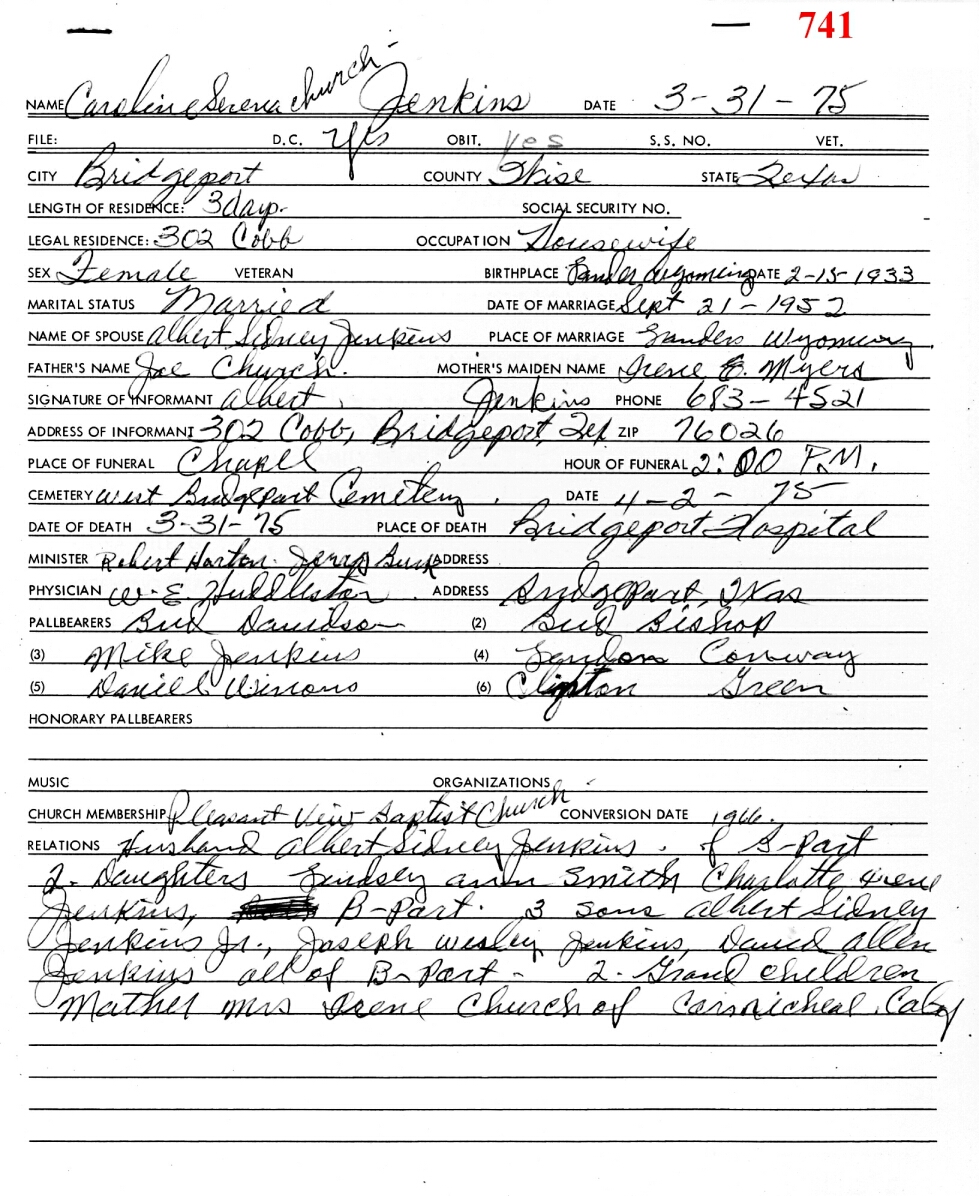 741
NAME Caroline Serena Church - Jenkins DATE 3-31-75
FILE: D.C. Yes OBIT. Yes S.S. NO. VET.
CITY Bridgeport COUNTY Wise STATE Texas
LENGTH OF RESIDENCE: 3 days. SOCIAL SECURITY NO.
LEGAL RESIDENCE: 302 Cobb OCCUPATION Housewife
SEX Female VETERAN BIRTHPLACE Lander Wyomeing DATE 2-15-1933
MARITAL STATUS Married DATE OF MARRIAGE Sept 21-1952
NAME OF SPOUSE Albert Sidney Jenkins PLACE OF MARRIAGE Landers Wyoming.
FATHER'S NAME Joe Church. MOTHER'S MAIDEN NAME Irene E. Myers
SIGNATURE OF INFORMANT Albert Jenkins PHONE 683-4521
ADDRESS OF INFORMANT 302 Cobb, Bridgeport, Tex ZIP 76026
PLACE OF FUNERAL Chapll HOUR OF FUNERAL 2:00 P.M.
CEMETERY West Bridgeport Cemetery. DATE 4-2-75
DATE OF DEATH 3-31-75 PLACE OF DEATH Bridgeport Hospital
MINISTER Robert Horton. Jerry ADDRESS
PHYSICIAN W.E. Huddleston. ADDRESS Bridgeport, Txas
PALLBEARERS Bud Davidson (2) Bud Bishop
(3) Mike Jenkins (4) Lyndon Conway
(5) Daniel Winons (6) Clinton Green
HONORARY PALLBEARERS
MUSIC ORGANIZATIONS
CHURCH MEMBERSHIP Pleasant View Baptist Church CONVERSION DATE 1966.
RELATIONS Husband Albert Sidney Jenkins. of B-Port
2. Daughters Lindsey Ann Smith Charlotte Irene
Jenkins, B-Port. 3 sons Albert Sidney
Jenkins Jr., Joseph Wesley Jenkins, David Allen
Jenkins all of B-Port - 2. Grand children
Mother Mrs Irene Church of Carmicheal, Calif